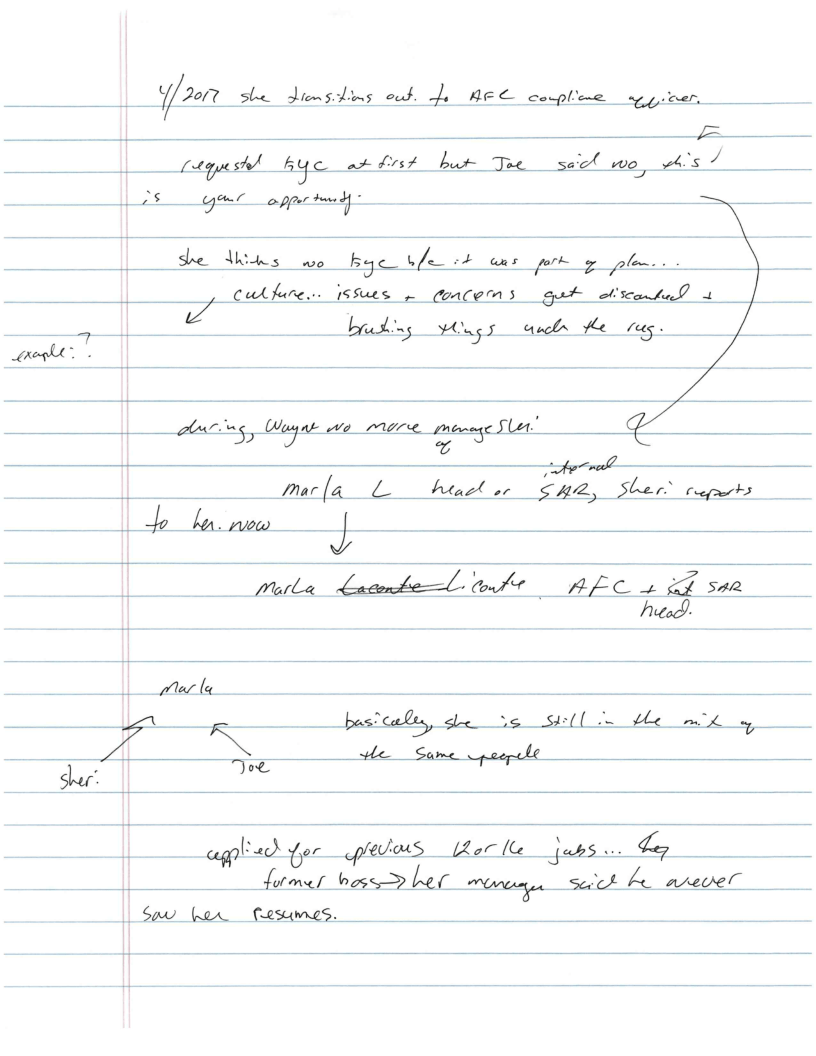 4/2017 she transitions out. to AFC compliance officer.
requested kyc at first but Joe said no, this
is your opportunity.
she thinks no kyc b/c it was part of plan...
culture... issues + concerns get discarded +
brushing things under the rug.
example?
during, Wayne no more manage Sheri
of
internal
Marla L head or SAR, Sheri reports
to her. now
Marla Lacontre Licontre. AFC + int SAR
head.
Marla
basically, she is still in the mix of
the same people
Sheri
Joe
applied for previous 12 or 16 jobs...
former boss → her manager said he never
saw her resumes.